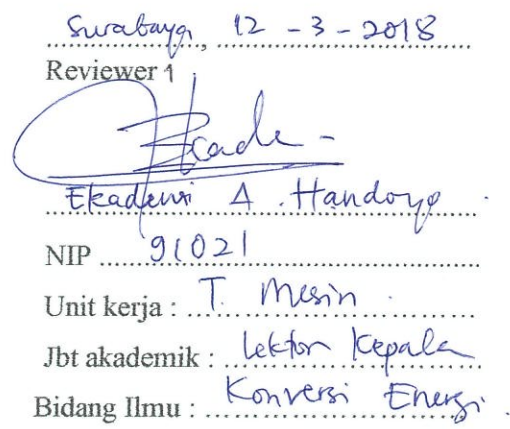 Surabaya, 12 - 3 - 2018
Reviewer 1
Ekadewi A. Handoyo
NIP 91021
Unit kerja : T. Mesin
Jbt akademik : Lektor Kepala
Bidang Ilmu : Konversi Energi